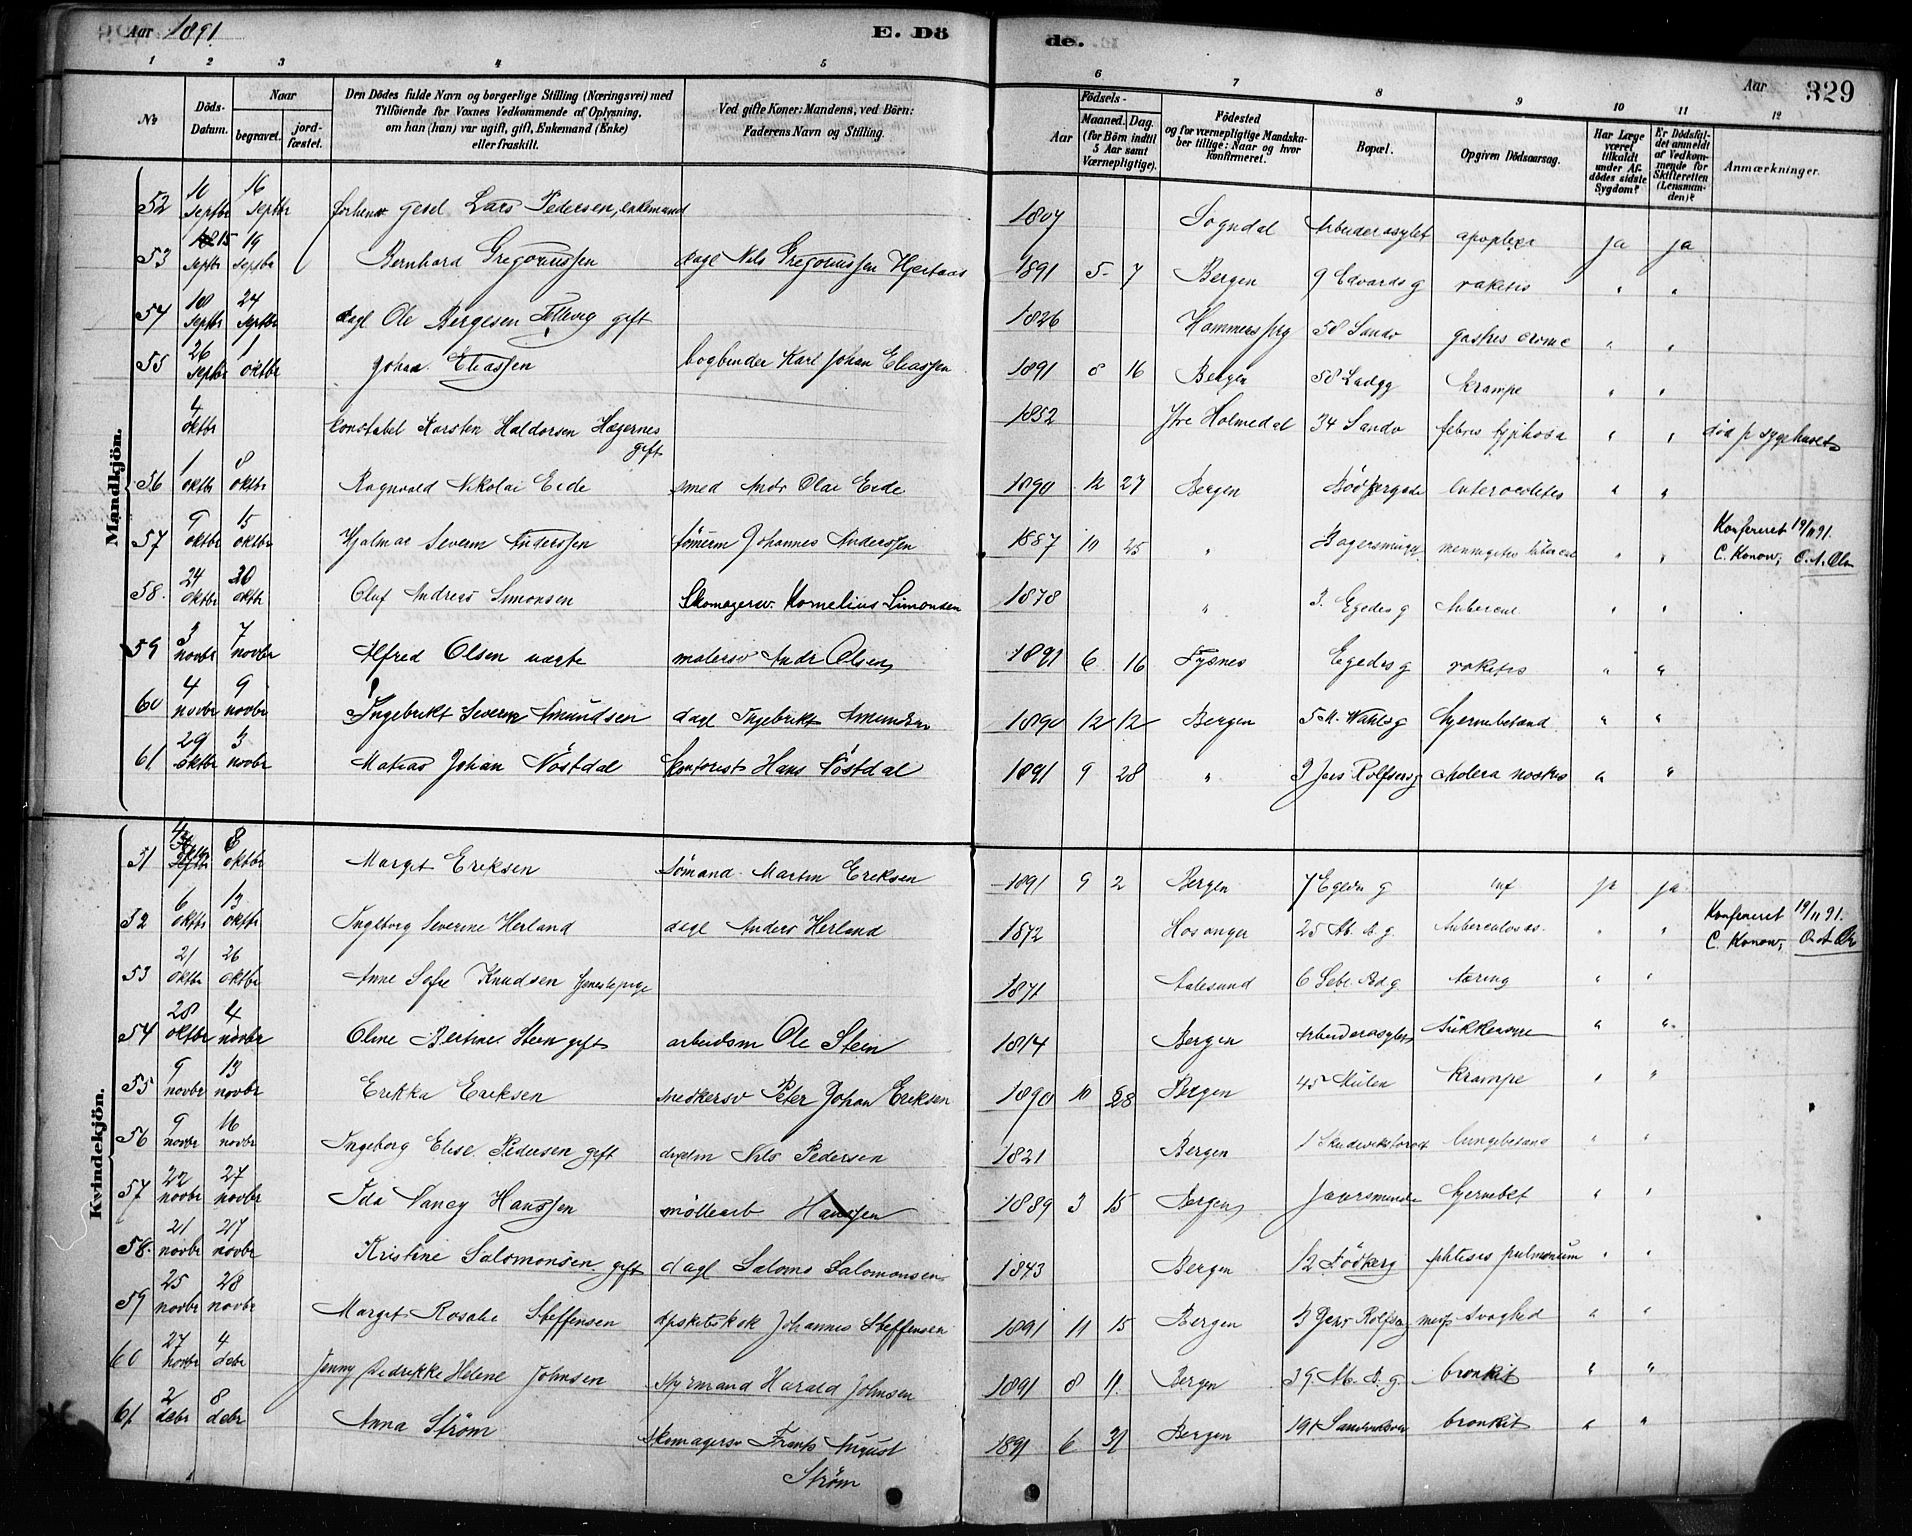 Aar 1891.
E. Dö
de.
Aar 329
1 2 3 4 5 6 7 8 9 10 11 12
No
Döds-Datum.
Naar
begravet.
jord-fæstet.
Den Dödes fulde Navn og borgerlige Stilling (Næringsvei) med
Tilföiende for Voxnes Vedkommende af Oplysning,
om han (hun) var ugift, gift, Enkemand (Enke)
eller fraskilt.
Ved gifte Koner: Mandens, ved Börn:
Faderens Navn og Stilling.
Födsels-
Aar
Maaned. Dag.
(for Börn indtil
5 Aar samt
Værnepligtige).
Födested
og for værnepligtige Mandska-
ber tillige: Naar og hvor
konfirmeret.
Bopæl.
Opgiven Dödsaarsag.
Har Læge
været
tilkaldt
under Af-
dödes sidste
Sygdom?
Er Dödsfal-
det anmeldt
af Vedkom-
mende for
Skifteretten
(Lensman-
den)?
Anmærkninger.
Mandkjön.
52 10 septbr 16 septbr gesel Lars Pedersen, enkemand 1807 Sogndal Arbeiderasylet apoplexi ja ja
53 15 septbr 19 septbr Bernhard Gregoriussen dagl Nils Gregoriussen Hjertaas 1891 5 7 Bergen 9 Edvardsg rakitis " "
54 18 septbr 24 septbr dagl Ole Bergesen gift 1826 58 Sandv " "
55 26 septbr 1 oktbr Johan Eliassen bogbinder Karl Johan Eliassen 1891 8 16 Bergen 58 Ladgg krampe " "
4 oktbr konstabel Karsten Haldorsen Hægernes gift 1852 Ytre Holmedal 34 Sandv febris typhosa " " död p sygehuset
56 1 oktbr 8 oktbr Ragnvald Nikolai Eide smed Andr Olai Eide 1890 12 27 Bergen " "
57 9 oktbr 15 oktbr Hjalmar Severin Anderssen tømerm Johannes Anderssen 1887 10 25 " " " Konfereret 19/11 91.
C. Konow,
58. 24 oktbr 30 oktbr Oluf Andreas Simonsen Skomagersv Kornelius Simonsen 1878 " 3 Egedesg tubercul " "
59 3 novbr 7 novbr Alfred Olsen uægte malersv Andr Olsen 1891 6 16 Egedesg rakitis " "
60 4 novbr 9 novbr Ingebrikt Severin Amundsen dagl Ingebrikt Amundsen 1890 12 12 Bergen 5 M. Wahlsg hjernebetænd " "
61 29 oktbr 3 novbr Matias Johan Nöstdal Kontorist Hans Nöstdal 1891 9 28 " 9 Jens Rolfsensg cholera nostras " "
Kvindekjön.
51 4 oktbr 8 oktbr Margit Eriksen sømand Martin Eriksen 1891 9 2 Bergen 7 Egedes g ja ja
52 6 oktbr 13 oktbr Ingeborg Severine Herland dagl Anders Herland 1872 Hosanger tuberculosis " " Konfereret 19/11 91.
C. Konow,
53 21 oktbr 26 oktbr Anne Sofie Knudsen tjenestepige 1871 Aalesund tæring " "
54 28 oktbr 4 novbr Oline Bertine Stein gift arbeidsm Ole Stein 1814 Bergen Arbeiderasylet " "
55 9 novbr 13 novbr Erikka Eriksen snedkersv Peter Johan Eriksen 1890 10 28 Bergen 45 Mulen krampe " "
56 9 novbr 16 novbr Ingeborg Elise Pedersen gift Nils Pedersen 1821 Bergen lungebetænd " "
57 22 novbr 27 novbr Ida Nancy Hanssen møllearb Hanssen 1889 3 15 Bergen hjernebet " "
58. 21 novbr 27 novbr Kristine Salomonsen gift dagl Salomo Salomonsen 1843 Bergen phtisis pulmonum " "
59 25 novbr 28 novbr Margit Rosalie Steffensen Johannes Steffensen 1891 11 15 Bergen svaghed " "
60 27 novbr 4 debr Jenny Didrikke Helene Johnsen styrmand Harald Johnsen 1891 8 11 Bergen bronkit " "
61 2 debr 8 debr Anna Strøm Skomagersv Frants August
Strøm 1891 6 31 Bergen bronkit " "